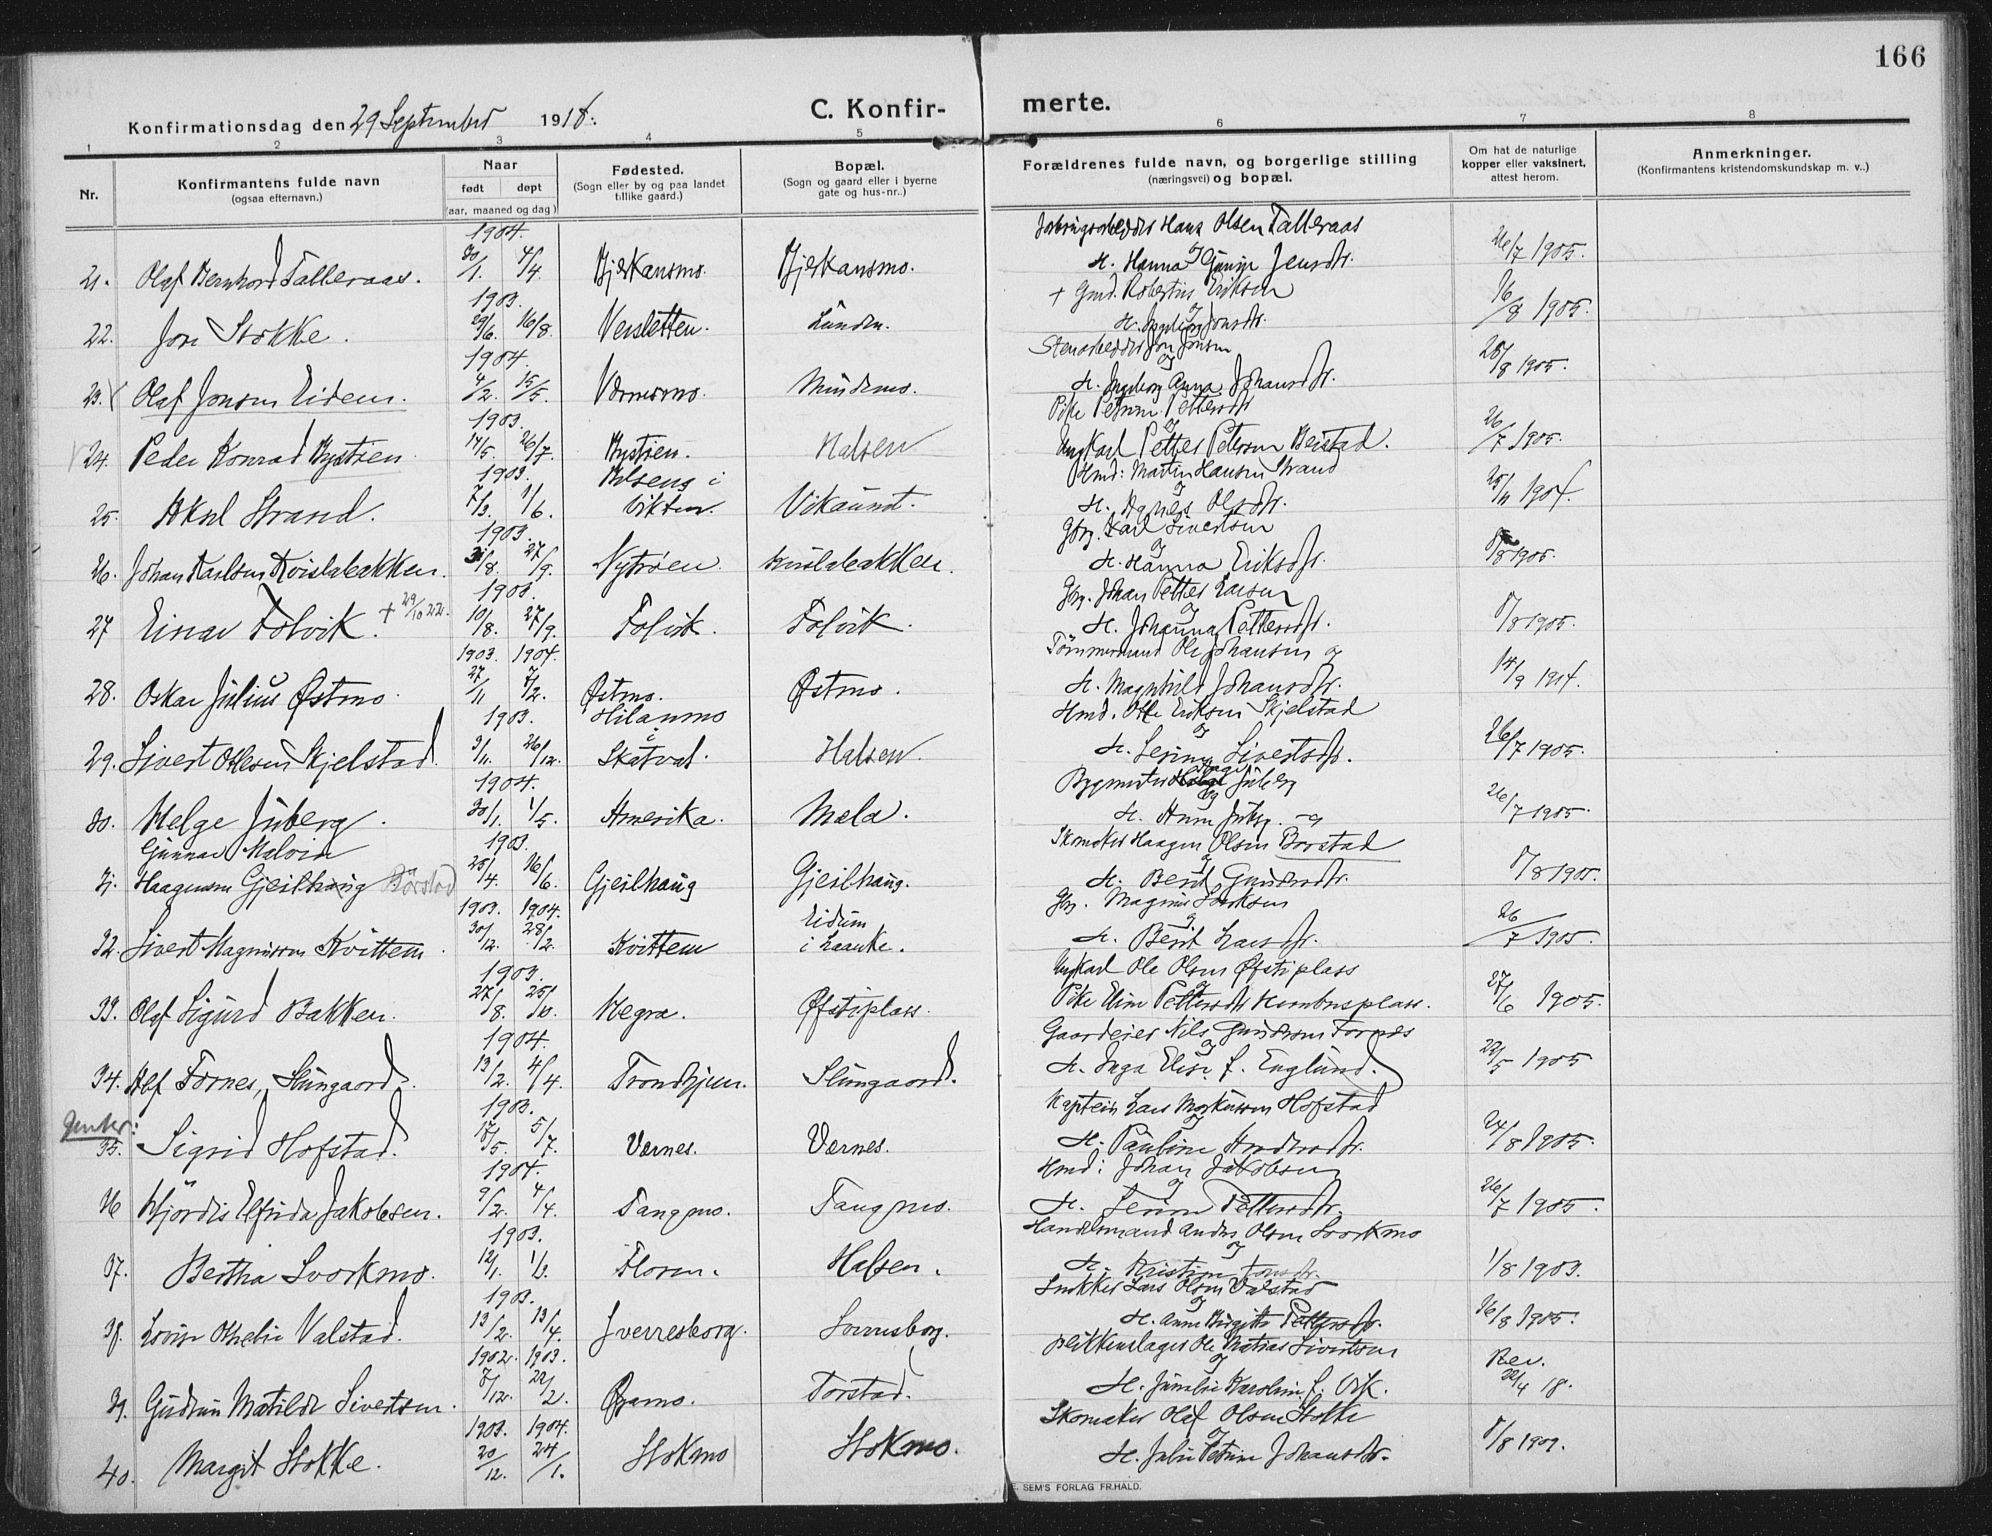 166
Konfirmationsdag den 29 September 1918.
C. Konfir- merte.
1 2 3 4 5 6 7 8
Nr.
Konfirmantens fulde navn
(ogsaa efternavn.)
Naar
født døpt
(aar, maaned og dag)
Fødested.
(Sogn eller by og paa landet
tillike gaard.)
Bopæl.
(Sogn og gaard eller i byerne
gate og hus-nr..)
Forældrenes fulde navn, og borgerlige stilling
(næringsvei) og bopæl.
Om hat de naturlige
kopper eller vaksinert,
attest herom.
Anmerkninger.
(Konfirmantens kristendomskundskap m. v..)
1904. Hans Olsen Talleraas
21. Olaf Bernhard Talleraas. 30/1. 4/4. H. Hanna Jensdtr. 26/7 1905.
1903. + Gmd. Robertus Eriksen
22. Jon Stokke. 29/6. 16/8. Versletten. Lunden. H. Jonsdtr. 16/8 1905.
1904. Jon Jonsen
23. Olaf Jonsen Eidem. 4/2. 15/5. Værnesmo. Mindemo. H. Ingeborg Anna Johansdtr. 28/8 1905.
1903. Pike Pettersdtr
24. Peder Konrad Bystrøen 14/5. 26/7. Bystøen. Halsen Ungkarl Petter Peterson Beistad. 26/7 1905.
1903. Hmd: Martin Hansen Strand
25. Aksel Strand. 7/3. 1/6. i Vikten. Vikaunet. H. Agnes Olsdtr. 25/11 1904.
1903. Gbr. Karl Sivertsen
26. Johan Karlsen Kvislabakken. 31/8. 27/9. Nytrøen Kvislabakken. og H. Hanna Eriksdtr. 8/8 1905.
1903. Gbr. Johan Petter Larsen
27 Einar Folvik. + 29/10 22. 10/8. 27/9. Folvik. Folvik. og H. Johanna Pettersdtr. 8/8 1905.
1903. 1904. Tømmermand Ole Johansen og
28. Oskar Julius Østmo. 27/11 7/2. Østmo. Østmo. H. Magnhild Johansdtr. 14/9 1914.
1903. Hilanmo Hmd. Otte Eriksen Skjelstad
29. Sivert Ottesen Skjelstad. 3/11. 26/12. i Skatval. Halsen. H. Serine Sivertsdtr. 26/7 1905.
1904. Bygmester Juberg
30. Helge Juberg. 30/1. 1/5. Amerika. Mæla. og H. Anna Juberg. 26/7 1905.
Gunnar Malvin 1903. Skomaker Haagen Olsen Borstad
31. Haagensen Gjeilhaug Børstad 25/4. 16/6. Gjeilhaug Gjeilhaug. og H. Berit Gundersdtr. 8/8 1905.
1903. 1904. Eidum Gbr. Magnus
32. Sivert Magnussen Kvittem. 30/12. 28/2. Kvittem i Laanke. og H. Berit Larsdtr. 26/7 1905.
1903. Ungkarl Ole Olsen Øfstiplass
33. Olaf Sigurd Bakken. 27/8. 25/10. Hegra. Øfstiplass. og Pike Elen Pettersdtr 27/6 1905.
1904. Gaardeier Nils Gundersen Fornes
34. Alf Fornes, Slungaard. 13/2. 4/4. Trondhjem. Slungaard. og H. Inga Elise f. Englund. 22/5 1905
Jenter: 1903. Kaptein Lars Markussen Hofstad
35. Sigrid Hofstad. 17/5. 5/7. Værnes. Værnes. og H. Pauline Andersdtr. 24/8 1905.
1904. Hmd: Johan Jakobsen
36 Hjördis Elfrida Jakobsen. 9/2. 4/4. Tangmo. Tangmo. og H. Serine Pettersdtr. 26/7 1905.
1903. Handelsmand Anders Olsen Svorkmo
37. Bertha Svorkmo. 12/1. 1/3. Floren. Halsen. og H. Kristine Jonsdtr. 1/8 1903.
1903. Snekker Lars Olsen Valstad
38. Lovise Othelie Valstad. 13/2. 13/4. Sverresborg. Sverresborg. og H. Anne Birgitte Pettersdtr. 16/8 1905.
1902. 1903. Blikkenslager Ole Matias Sivertsen Rev.
39. Gudrun Matilde Sivertsen. 8/12. 22/2. Øyamo. Torstad. og H. Karoline f. Vik. 22/4 18.
1903. 1904. Skomaker Olaf Olsen Stokke
40. Margit Stokke. 20/12. 24/1. Stokmo Stokmo. og H. Julie Petrine Johansdtr. 8/8 1909.
E. SEM'S FORLAG FR.HALD.